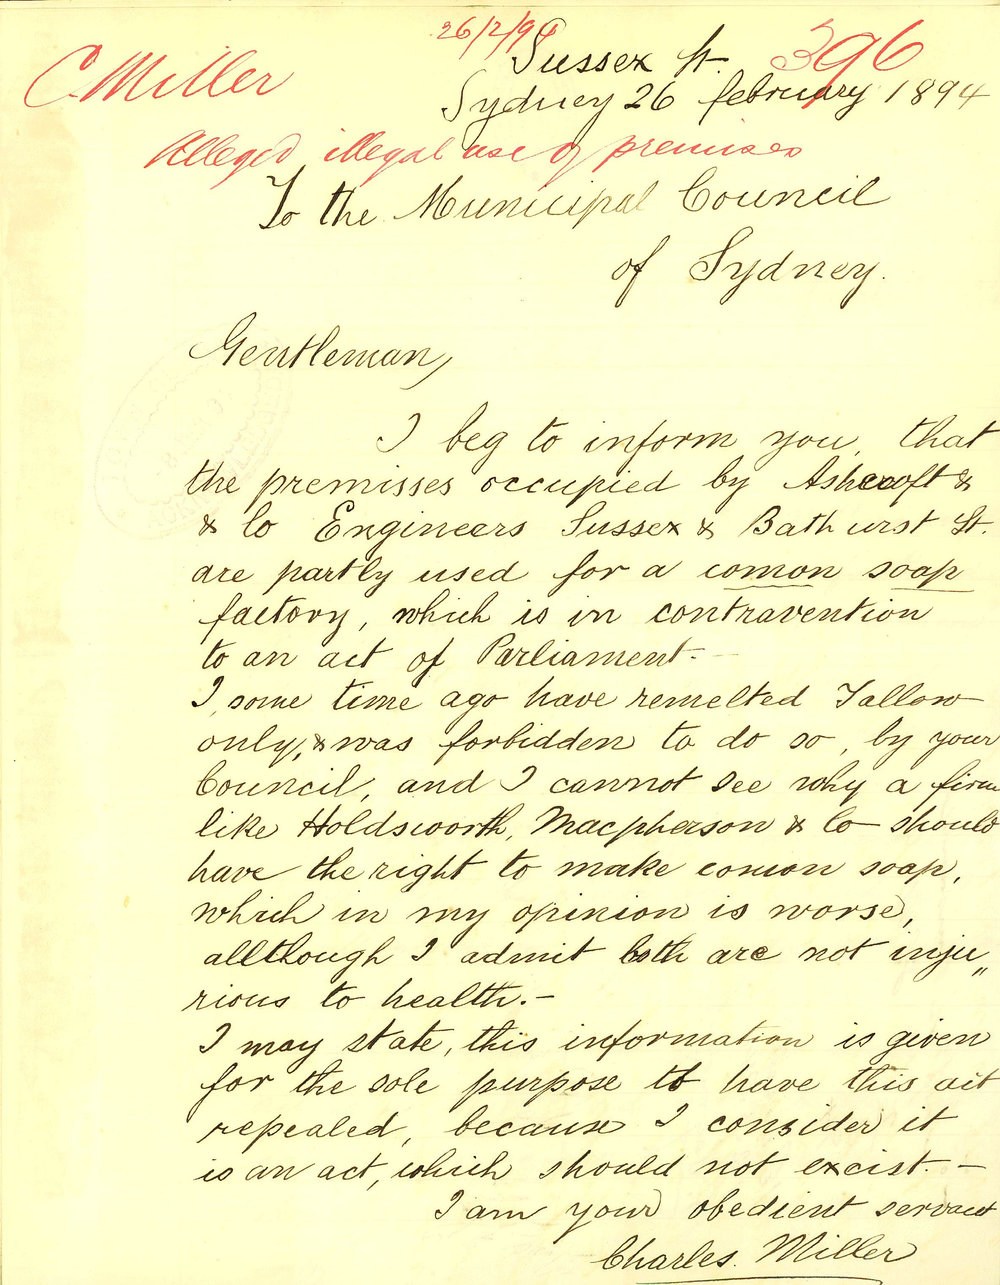 26/2/94
Sussex St. 396
C. Miller
Sydney 26 february 1894
Alleged illegal use of premises
To the Municipal Council
of Sydney.
Gentleman,
I beg to inform you, that
the premisses occupied by Ashcroft &
& Co Engineers Sussex & Bathurst St.
are partly used for a comon soap
factory, which is in contravention
to an act of Parliament.-
I, some time ago have remelted Tallow
only, & was forbidden to do so, by your
Council, and I cannot see why a firm
like Holdsworth, Macpherson & Co should
have the right to make comon soap,
which in my opinion is worse,
allthough I admit both are not inju„
rious to health.-
I may state, this information is given
for the sole purpose to have this act
repealed, because I consider it
is an act, which should not excist.-
I am your obedient servant
Charles. Miller